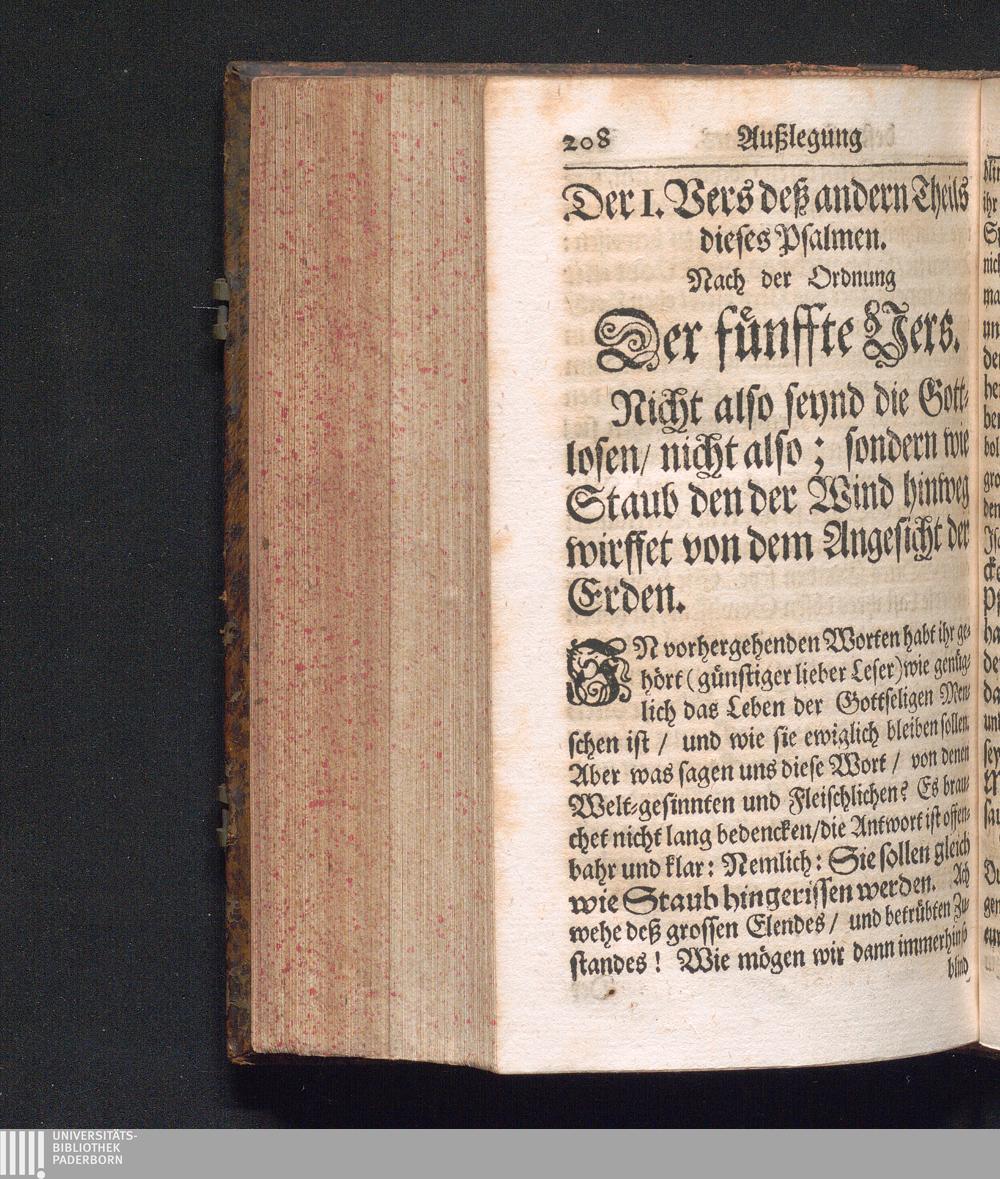 208 Außlegung
Der I. Vers deß andern Theils
dieses Psalmen.
Nach der Ordnung
Der fünffte Vers.
Nicht also seynd die Gott⸗
losen/ nicht also; sondern wie
Staub den der Wind hinweg
wirffet von dem Angesicht der
Erden.
IN vorhergehenden Worten habt ihr ge⸗
hört (günstiger lieber Leser) wie genüg⸗
lich das Leben der Gottseligen Men⸗
schen ist / und wie sie ewiglich bleiben sollen.
Aber was sagen uns diese Wort / von denen
Welt⸗gesinnten und Fleischlichen? Es brau⸗
chet nicht lang bedencken/die Antwort ist offen⸗
bahr und klar: Nemlich: Sie sollen gleich
wie Staub hingerissen werden. Ach
wehe deß grossen Elendes / und betrübten Zu⸗
standes! Wie mögen wir dann immerhin so
blind
UNIVERSITÄTS-
BIBLIOTHEK
PADERBORN